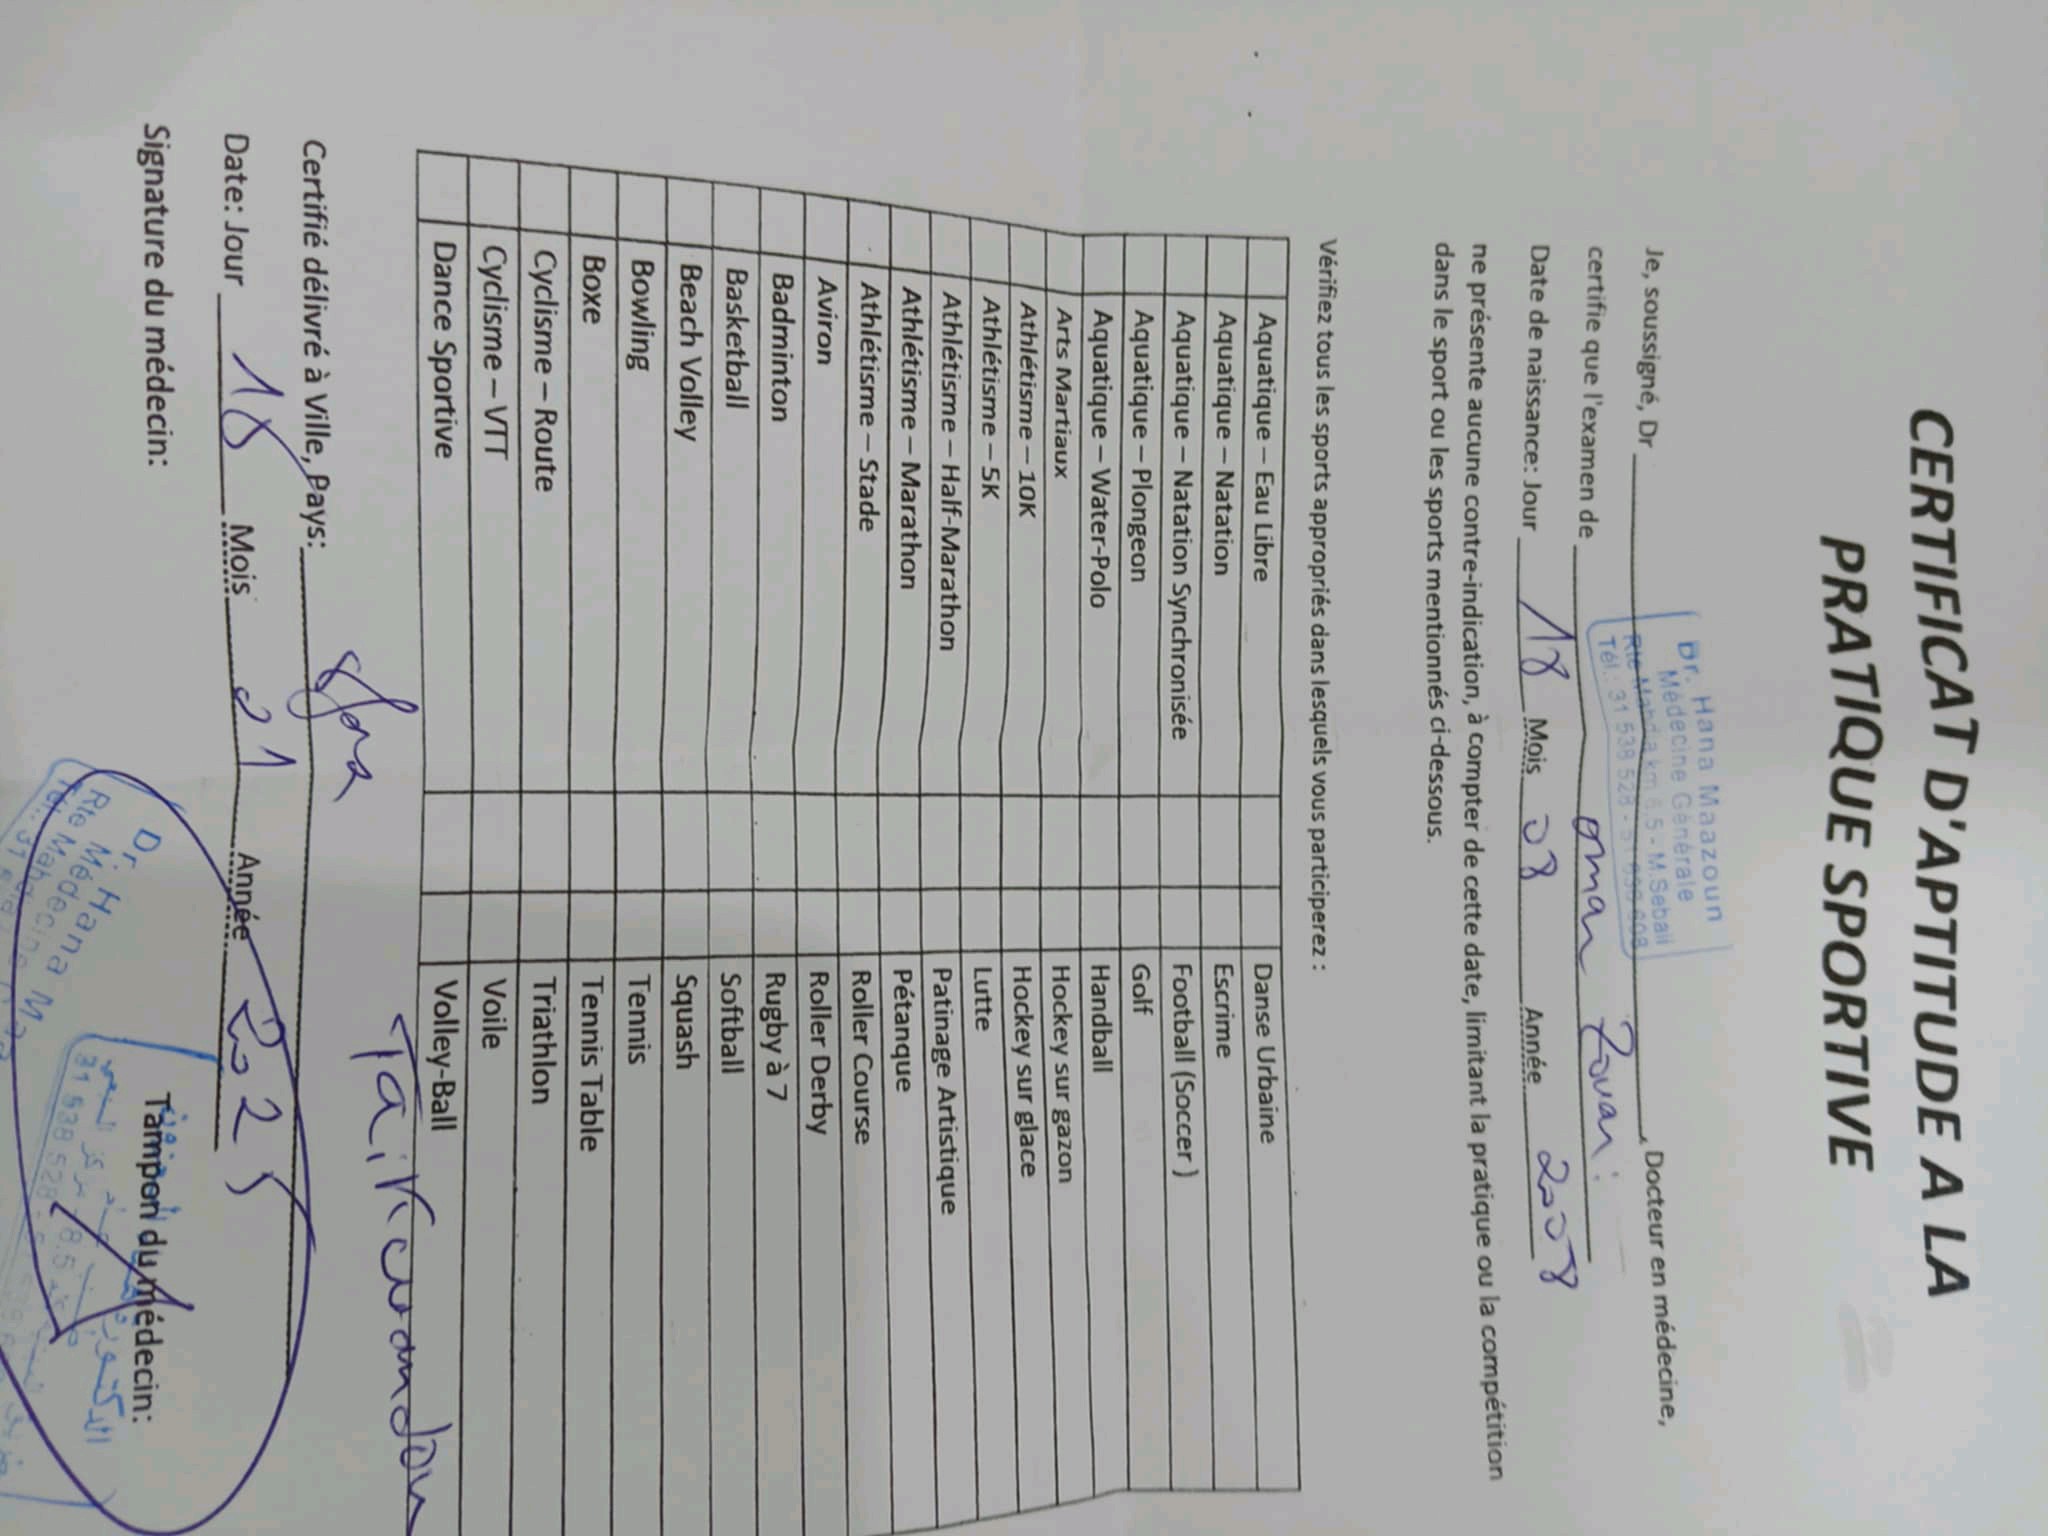 CERTIFICAT D'APTITUDE A LA
PRATIQUE SPORTIVE
Dr. Hana Maazoun
Médecine Générale
Rte Mahdia km 6.5 - M.Sebaii
Tél.: 31 538 528 -
Je, soussigné, Dr , Docteur en médecine,
certifie que l'examen de omar Zouari
Date de naissance: Jour 18 Mois 08 Année 2008
ne présente aucune contre-indication, à compter de cette date, limitant la pratique ou la compétition
dans le sport ou les sports mentionnés ci-dessous.
Vérifiez tous les sports appropriés dans lesquels vous participerez :
Aquatique – Eau Libre Danse Urbaine
Aquatique – Natation Escrime
Aquatique – Natation Synchronisée Football (Soccer )
Aquatique – Plongeon Golf
Aquatique – Water-Polo Handball
Arts Martiaux Hockey sur gazon
Athlétisme – 10K Hockey sur glace
Athlétisme – 5K Lutte
Athlétisme – Half-Marathon Patinage Artistique
Athlétisme – Marathon Pétanque
Athlétisme – Stade Roller Course
Aviron Roller Derby
Badminton Rugby à 7
Basketball Softball
Beach Volley Squash
Bowling Tennis
Boxe Tennis Table
Cyclisme – Route Triathlon
Cyclisme – VTT Voile
Dance Sportive Volley-Ball
Taikwondou
Certifié délivré à Ville, Pays: Sfax
Date: Jour 18 Mois 01 Année 2025
Signature du médecin: Tampon du médecin:
Dr Hana
Médecine
Rte Mahdia
31 538 528